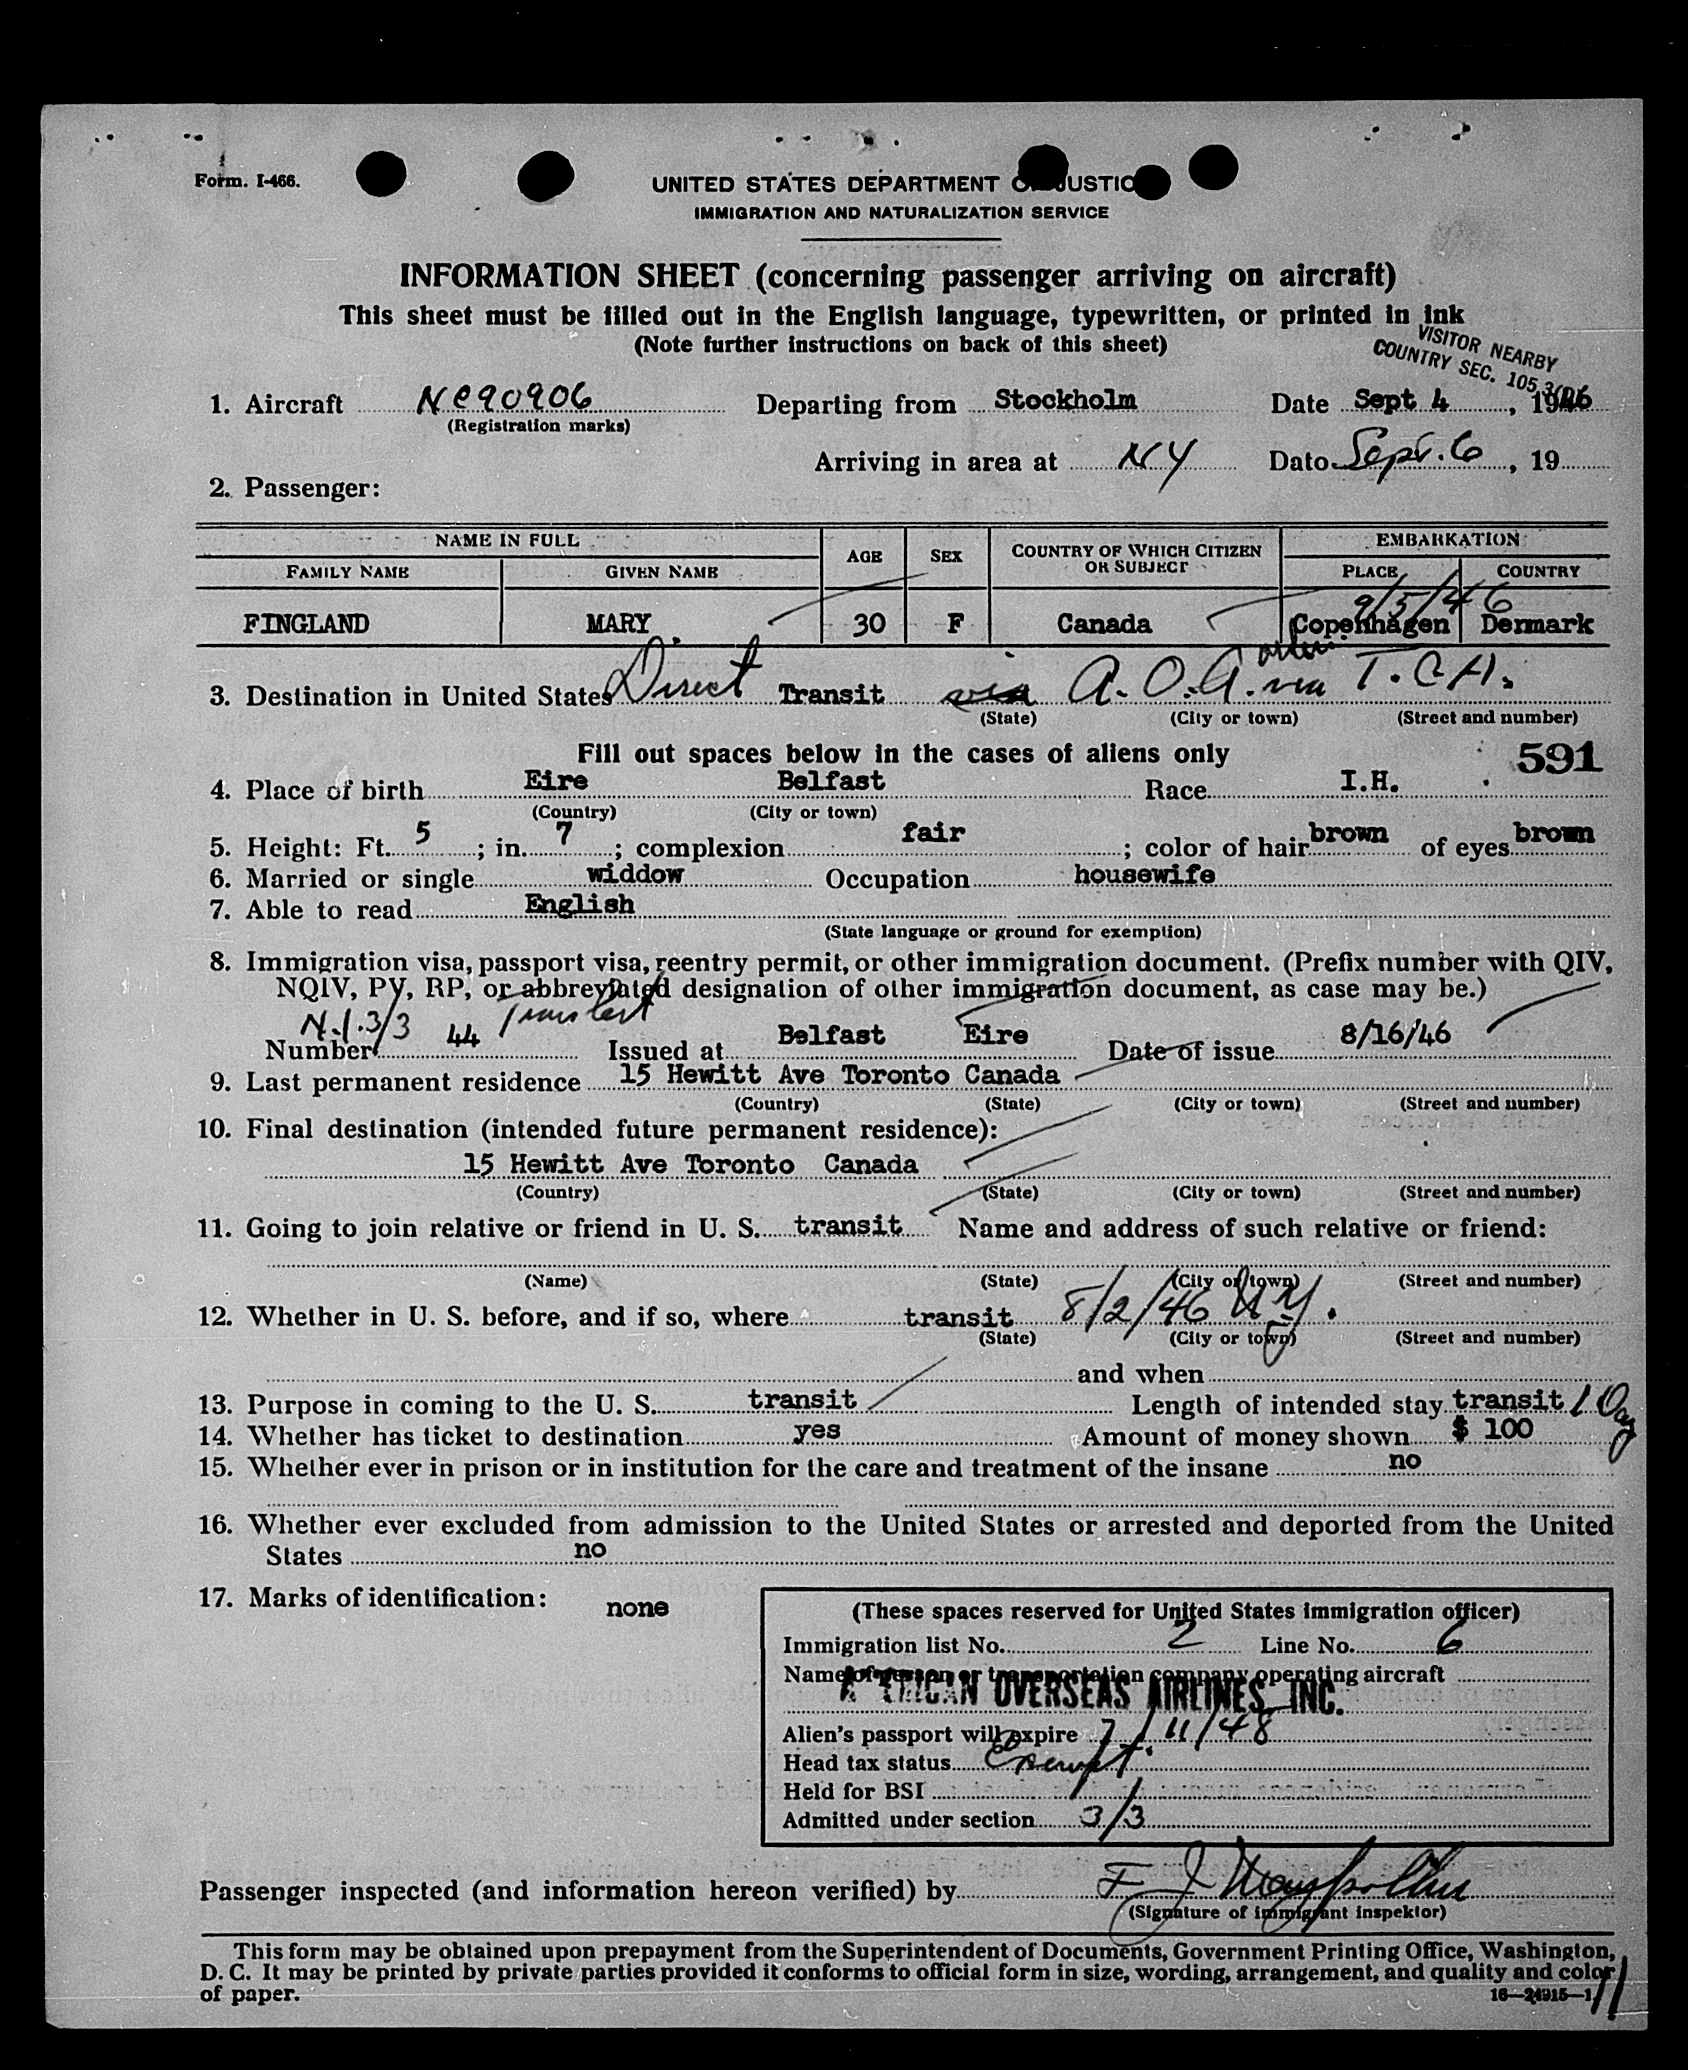 Form. I-466.
UNITED STATES DEPARTMENT OF JUSTICE
IMMIGRATION AND NATURALIZATION SERVICE
INFORMATION SHEET (concerning passenger arriving on aircraft)
This sheet must be filled out in the English language, typewritten, or printed in ink
(Note further instructions on back of this sheet)
VISITOR NEARBY
COUNTRY SEC. 105.3
1. Aircraft NC90906 Departing from Stockholm Date Sept 4, 1946
(Registration marks)
Arriving in area at NY Date Sept. 6, 19
2. Passenger:
NAME IN FULL AGE SEX COUNTRY OF WHICH CITIZEN OR SUBJECT EMBARKATION
FAMILY NAME GIVEN NAME PLACE COUNTRY
9/5/46
FINGLAND MARY 30 F Canada Copenhagen Denmark
3. Destination in United States Direct Transit via A.O.A. via T.C.A.
(State) (City or town) (Street and number)
Fill out spaces below in the cases of aliens only 591
4. Place of birth Eire Belfast Race I.H.
(Country) (City or town)
5. Height: Ft. 5; in. 7; complexion fair; color of hair brown of eyes brown
6. Married or single widdow Occupation housewife
7. Able to read English
(State language or ground for exemption)
8. Immigration visa, passport visa, reentry permit, or other immigration document. (Prefix number with QIV,
NQIV, PV, RP, or abbreviated designation of other immigration document, as case may be.)
N.I. 3/3 Transit
Number 44 Issued at Belfast Eire Date of issue 8/16/46
9. Last permanent residence 15 Hewitt Ave Toronto Canada
(Country) (State) (City or town) (Street and number)
10. Final destination (intended future permanent residence):
15 Hewitt Ave Toronto Canada
(Country) (State) (City or town) (Street and number)
11. Going to join relative or friend in U. S. transit Name and address of such relative or friend:
(Name) (State) (City or town) (Street and number)
12. Whether in U. S. before, and if so, where transit 8/2/46 N.Y.
(State) (City or town) (Street and number)
and when
13. Purpose in coming to the U. S. transit Length of intended stay transit 1 Day
14. Whether has ticket to destination yes Amount of money shown $ 100
15. Whether ever in prison or in institution for the care and treatment of the insane no
16. Whether ever excluded from admission to the United States or arrested and deported from the United
States no
17. Marks of identification: none
(These spaces reserved for United States immigration officer)
Immigration list No. 2 Line No. 6
Name of person or transportation company operating aircraft
AMERICAN OVERSEAS AIRLINES, INC.
Alien's passport will expire 7/11/48
Head tax status Exempt.
Held for BSI
Admitted under section 3/3
Passenger inspected (and information hereon verified) by F J
(Signature of immigrant inspektor)
This form may be obtained upon prepayment from the Superintendent of Documents, Government Printing Office, Washington,
D. C. It may be printed by private parties provided it conforms to official form in size, wording, arrangement, and quality and color
of paper.
16—24915—1